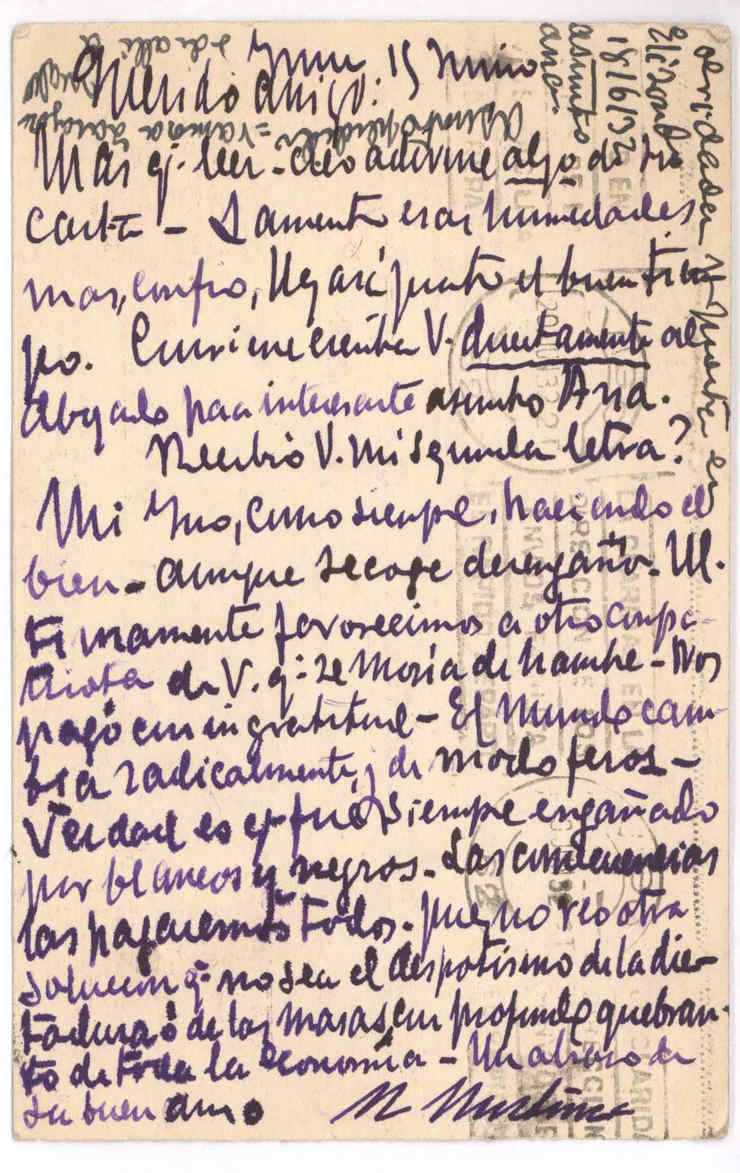 Irun 15 Junio
Querido amigo:
Mas q. leer - creo adivine algo de su
carta - Lamento esas humedades
mas, confio, llegará pronto el buen tiem
po. Conviene escriba V. directamente al
abogado para interesante asunto Ana.
Recibió V. mi segunda letra?
Mi Yno, como siempre, haciendo el
bien - aunque recoge desengaños. Ul
timamente favorecimos a otro compa-
triota de V. q. se moria de hambre - Nos
pagó con ingratitud - El mundo cam
bia radicalmente, y de modo feroz -
Verdad es q. fué siempre engañado
por blancos y negros. Las consecuencias
las pagaremos todos. pues no veo otra
solución q. no sea el despotismo de la dic-
tadura ó de las masas con profundo quebran-
to de toda la economía - Un abrazo de
su buen amigo
Elizondo
18/6/32
asunto
Ana